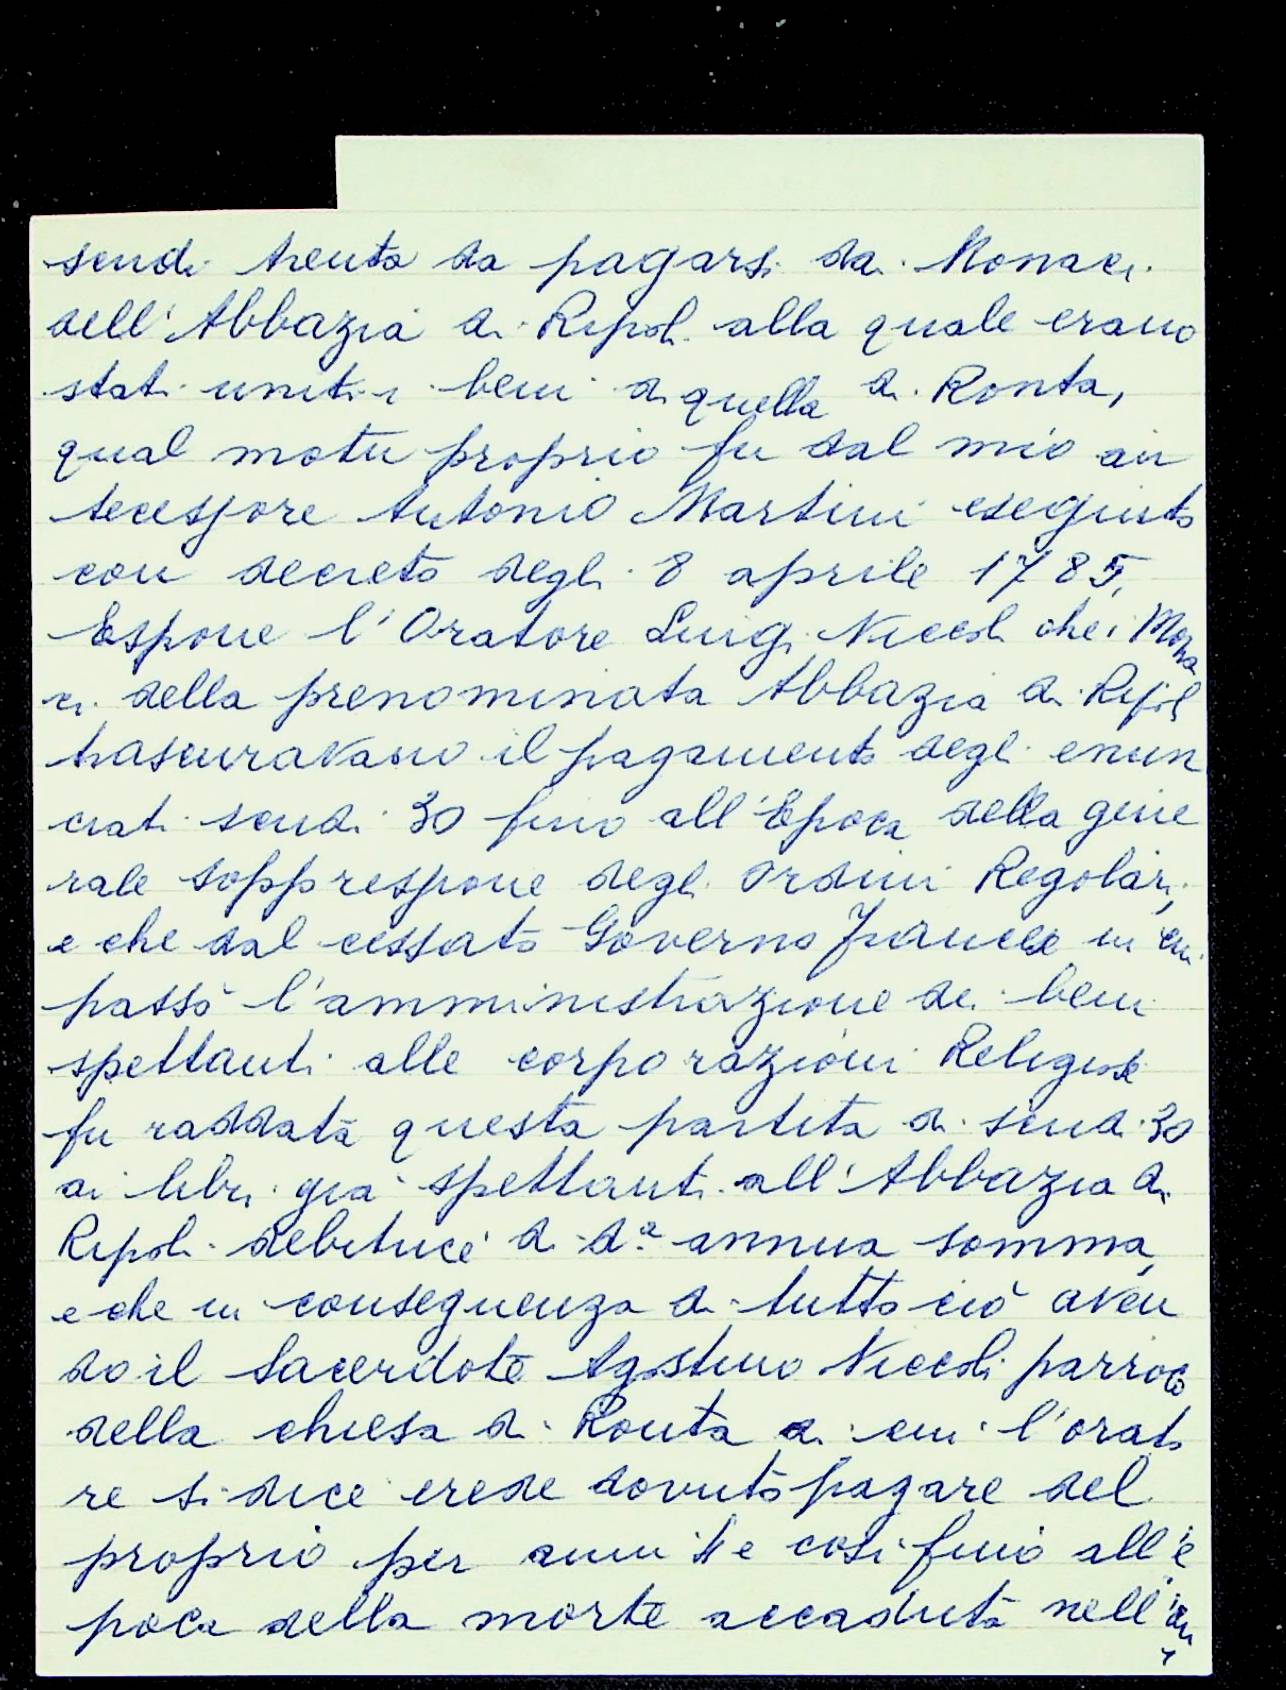 scudi trenta da pagarsi dai Monaci
dell'Abbazia di Ripoli alla quale erano
stati uniti i beni di quella di Ronta,
qual motu proprio fu dal mio an
tecessore Antonio Martini eseguito
con decreto degli 8 aprile 1785.
Espone l'Oratore Luigi Niccoli che i Mona
ci della prenominata Abbazia di Ripoli
trascuravano il pagamento degli enun
ciati scudi 30 fino all'Epoca della gene
rale soppressione degli Ordini Regolari,
e che dal cessato Governo Francese in cui
passò l'amministrazione dei beni
spettanti alle corporazioni Religiose
fu raddata questa partita di scudi 30
ai libri già spettanti all'Abbazia di
Ripoli debitrice di d.ª annua somma,
e che in conseguenza di tutto ciò aven
do il Sacerdote Agostino Niccoli parroco
della chiesa di Ronta di cui l'orato
re si dice erede dovuto pagare del
proprio per anni e così fino all'e
poca della morte accaduta nell'an